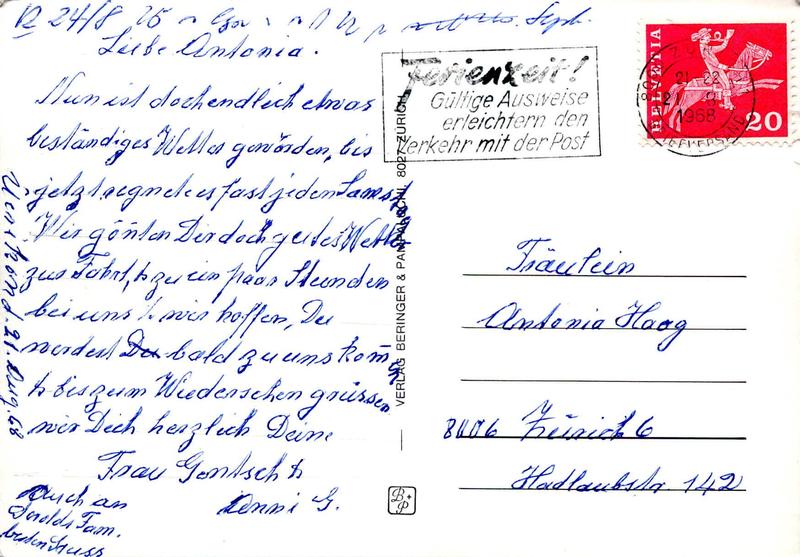 24/8
Sept.
Liebe Antonia.
Nun ist doch endlich etwas
beständiges Wetter geworden, bis
jetzt regnete es fast jeden Samst
Wir gönten Dir doch gutes Wetter
zur Fahrt, & zu ein paar Stunden
bei uns & wir hoffen, Du
werdest Du bald zu uns kom
& bis zum Wiedersehen grüssen
wir Dich herzlich Deine
Frau Gontsch &
Anni G.
Auch an
Fam.
besten Gruss
21. Aug. 68
VERLAG BERINGER & PAMPALUCHI, 8027 ZÜRICH
B+P
Ferienzeit!
Gültige Ausweise
erleichtern den
Verkehr mit der Post
HELVETIA
20
21.-22
1968
Fräulein
Antonia Haag
8006 Zürich 6
Hadlaubstr. 142